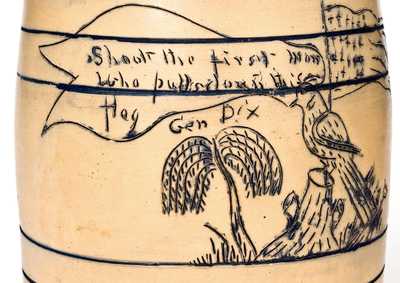 Shoot the first man
Who pulls down this
Flag
Gen Dix